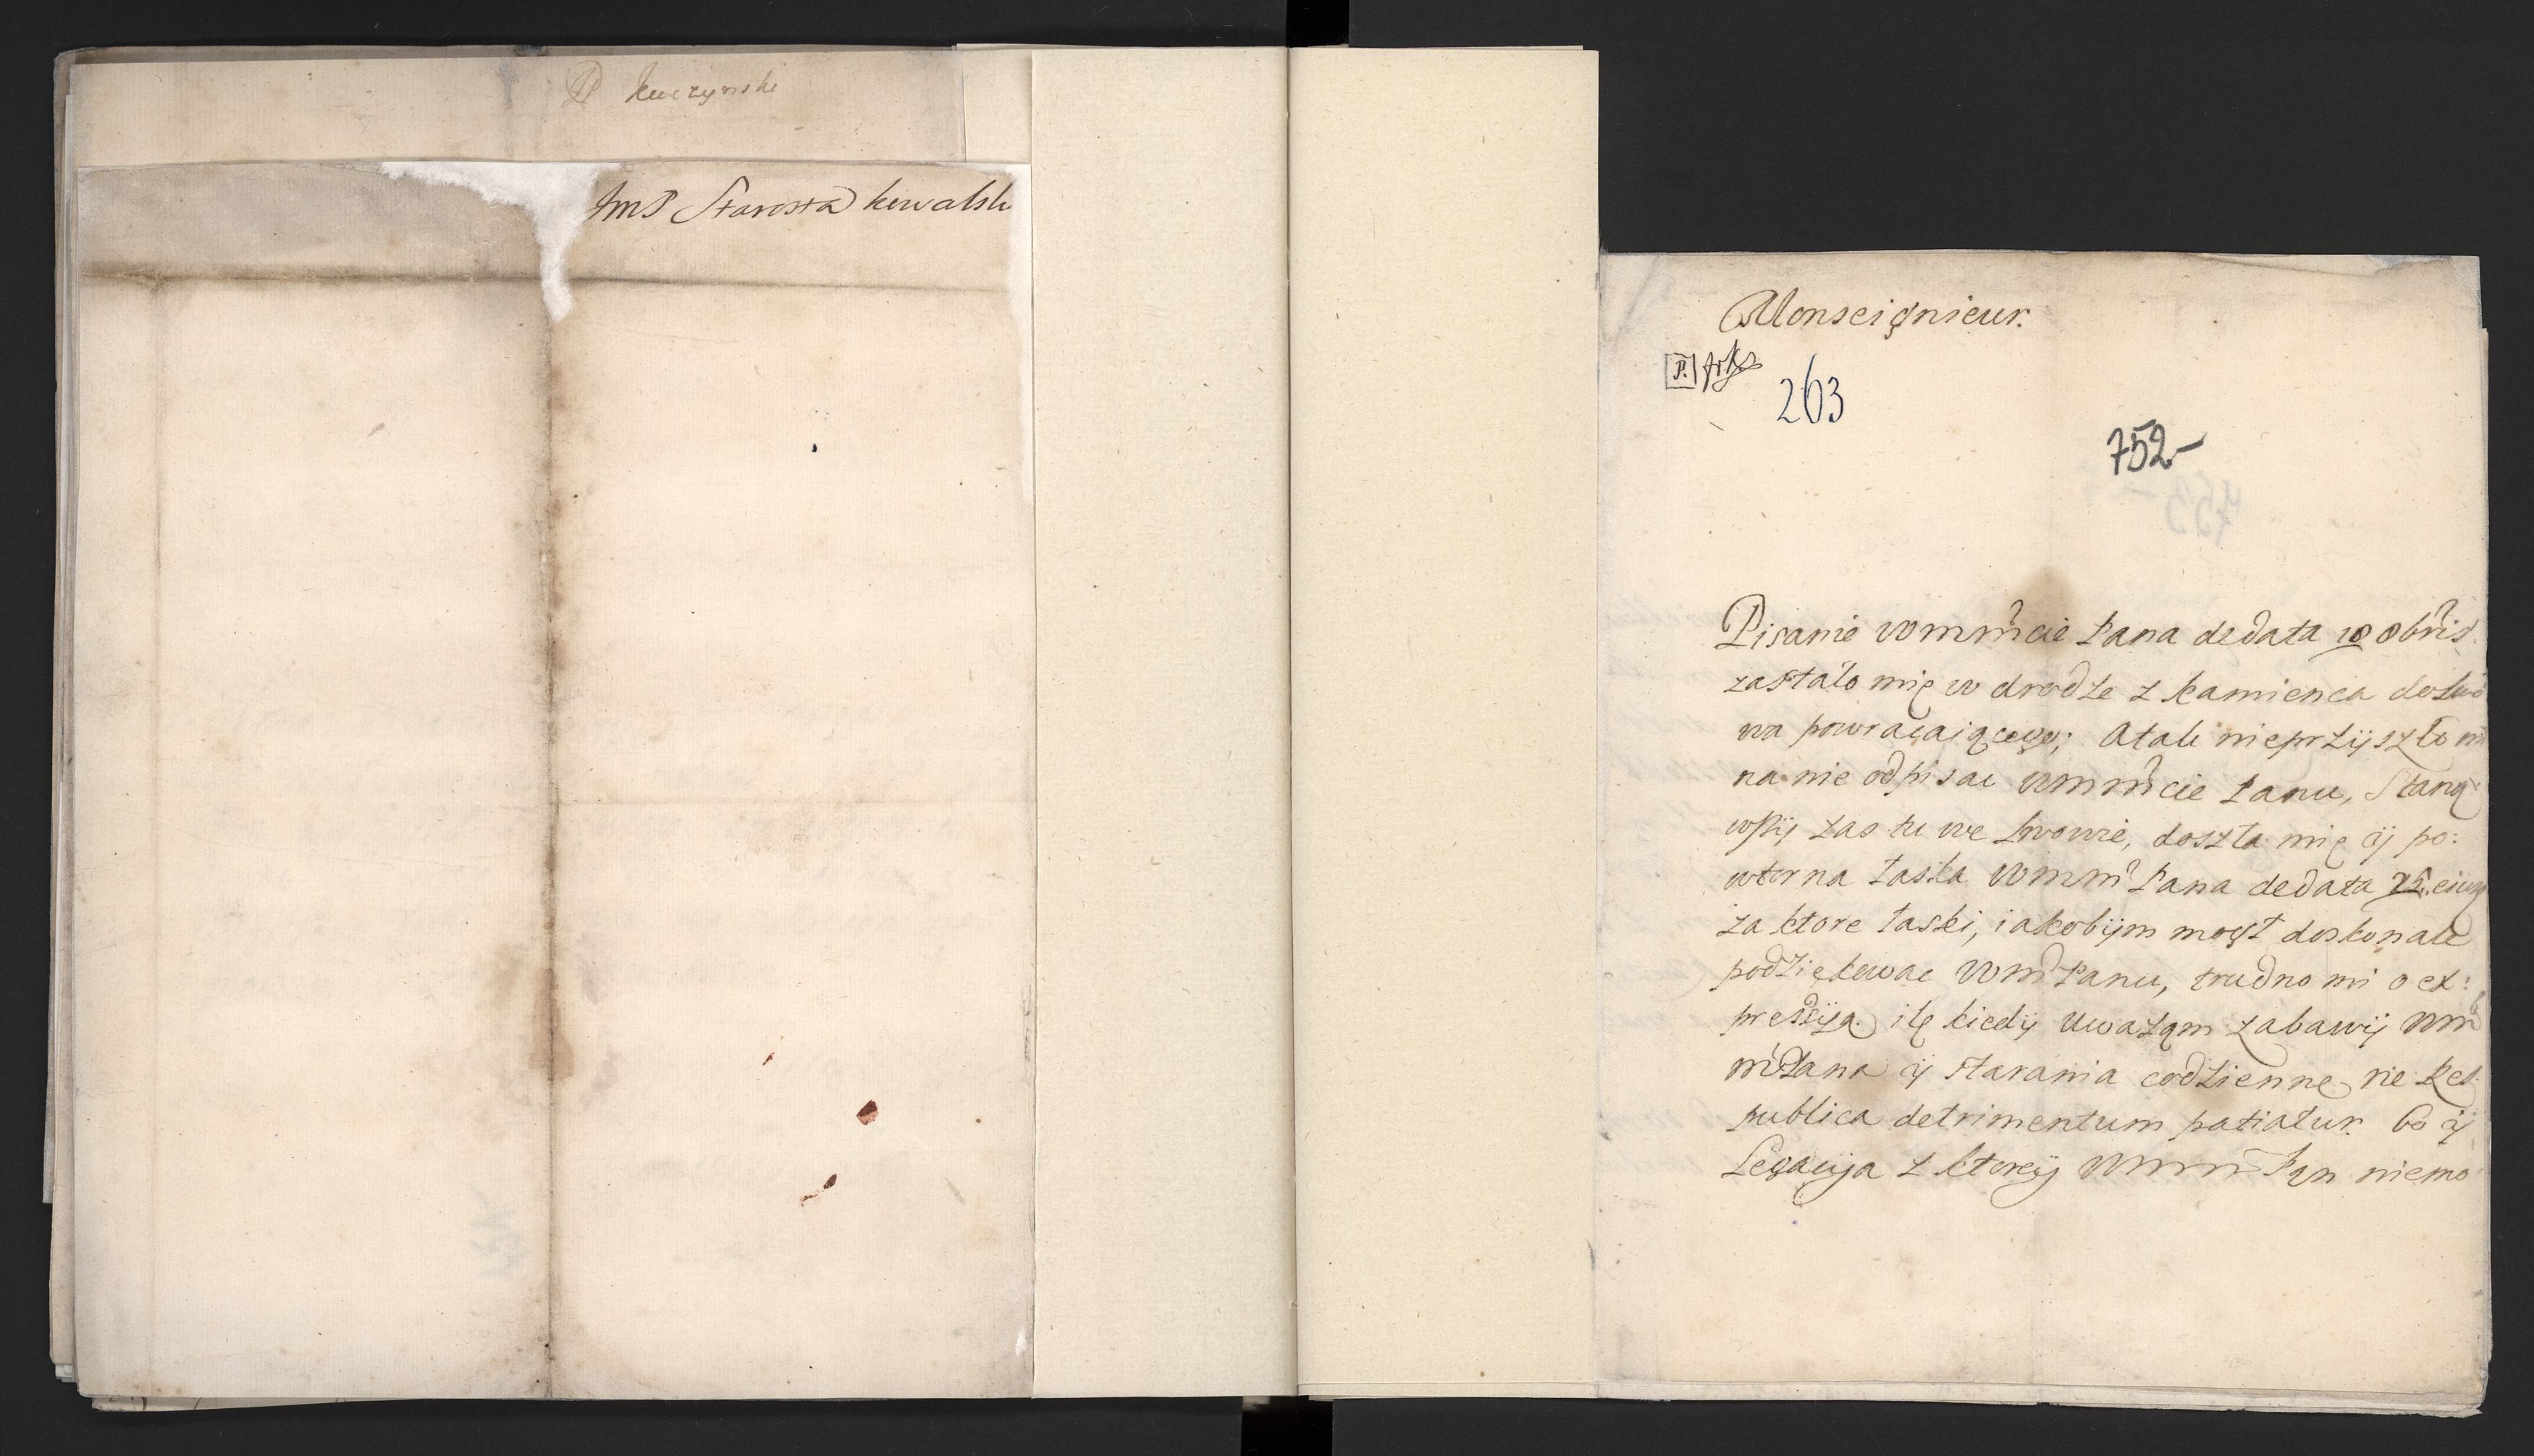 P Kuczynski
JmP Starosta kowalski
Monseignieur.
P.
263
752-
Pisanie Wmmcie Pana dedata 10 8bris
zastało mię w drodze z kamienca do Lwo
wa powracaiącego; Atak nieprzyszło mi
na nie odpisac Wmmcie Panu, Staną
wszÿ zas tu we Lwowie, doszła mię ÿ po:
wtorna łaska Wmm Pana dedata 25. eiusd
za ktore łaski, iakobÿm mogł doskonale
podziękowac Wm Panu, trudno mi o ex:
pressÿą ile kiedÿ uwazam zabawÿ Wm
m Pana ÿ starania codzienne, ne Res
publica detrimentum patiatur. bo ÿ
Legacÿa z ktoreÿ Wmm Pan niemo